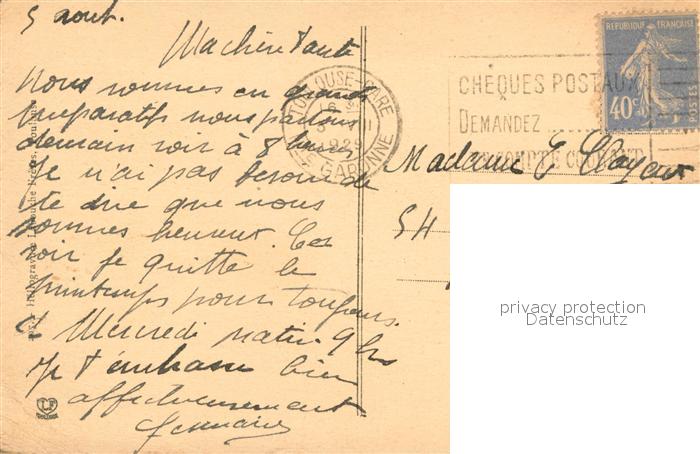 5 aout.
Ma chère Tante
Nous sommes en grands
préparatifs nous partons
demain soir à 8 heures
Je n'ai pas besoin de
te dire que nous
sommes heureux. Ce
soir je quitte le
printemps pour toujours.
A Mercredi matin 9 hs
Je t'embrasse bien
affectueusement
Germaine
TOULOUSE-GARE
1929
HTE GARONNE
CHEQUES POSTAUX
DEMANDEZ
COMPTE COURANT
REPUBLIQUE FRANÇAISE
40c
POSTES
Madame E.
54
LF
TOULOUSE
privacy protection
Datenschutz